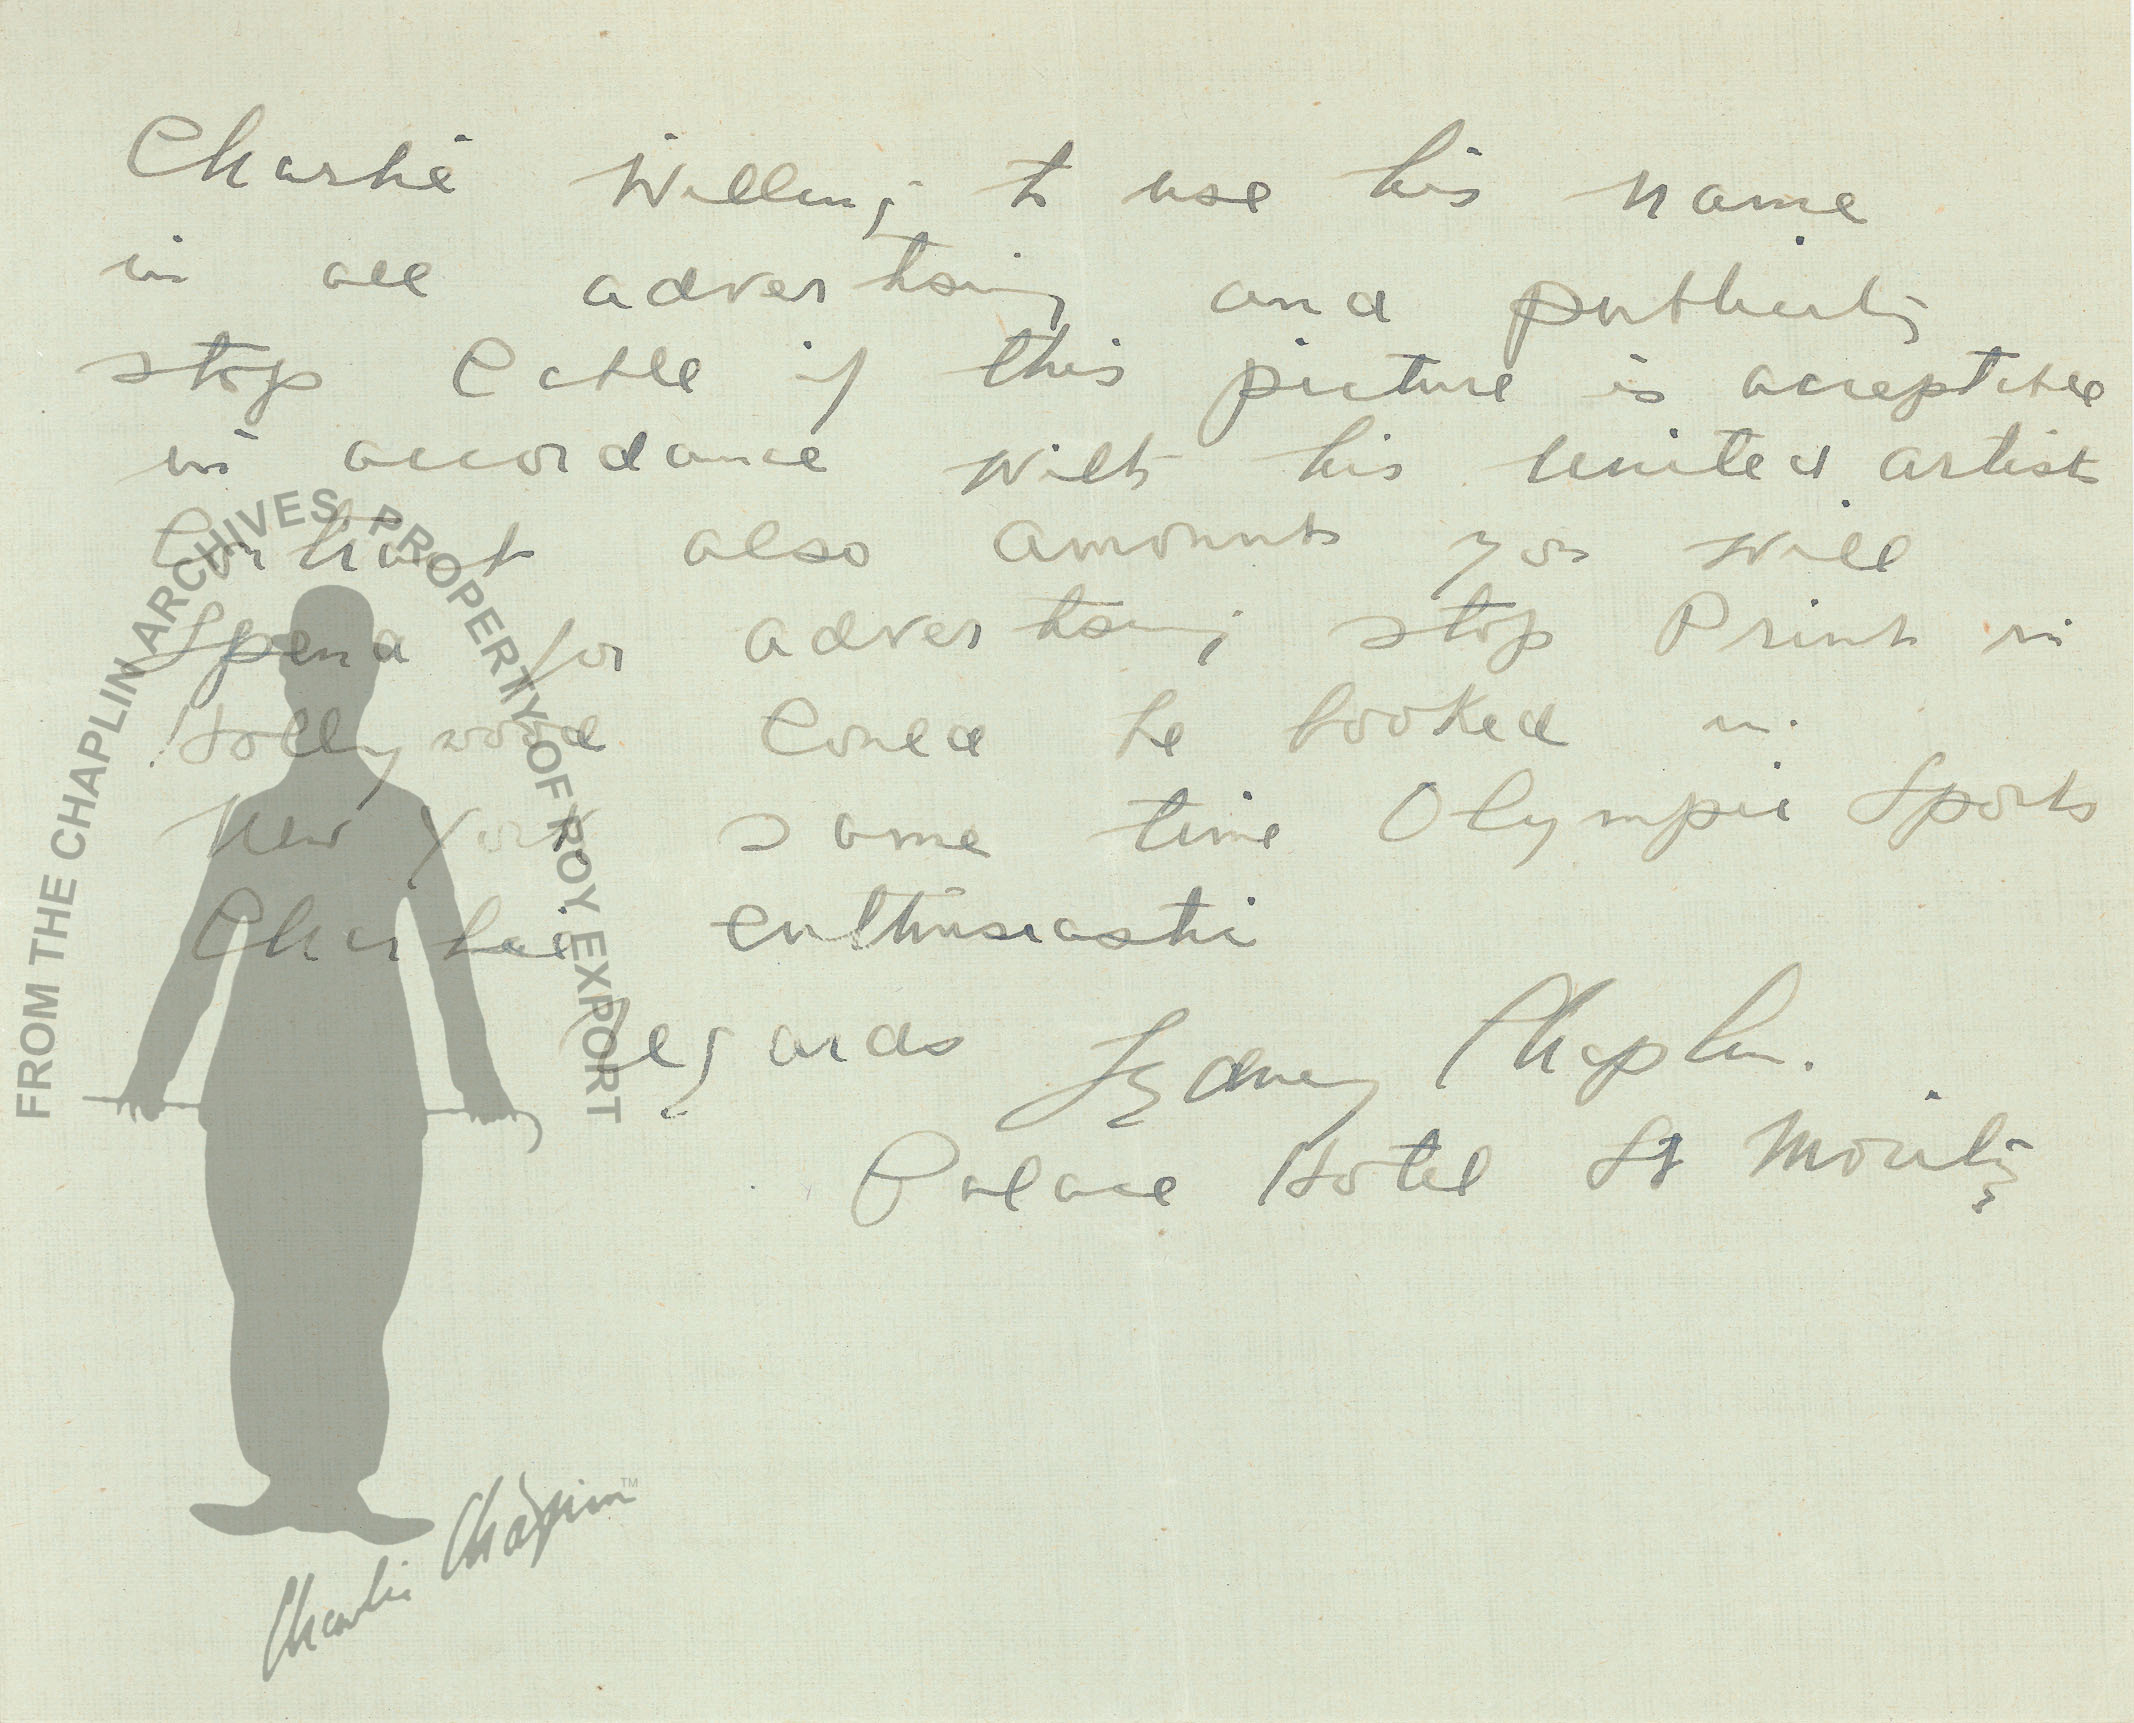 Charlie Willing to use his name
in all advertising and publicity
stop Cable if this picture is acceptable
in accordance with his United artists
Contract also amount you will
Spend for advertising stop Print in
Hollywood Could be booked in
New York same time Olympic Sports
Charlie enthusiastic
Regards Sydney Chaplin.
Palace Hotel St Moritz
FROM THE CHAPLIN ARCHIVES, PROPERTY OF ROY EXPORT
Charlie Chaplin™